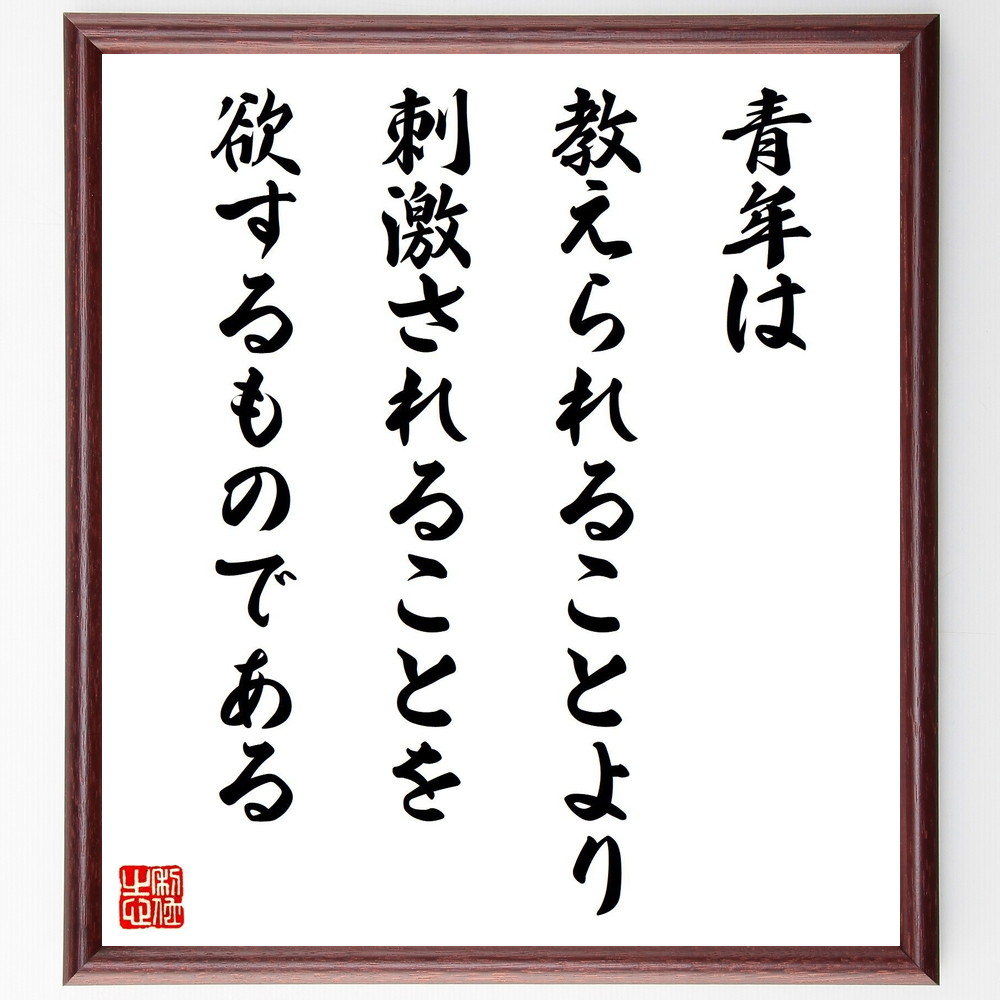 青年は
教えられることより
刺激されることを
欲するものである